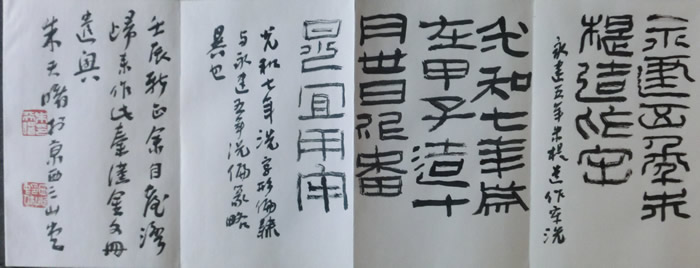 永建五年朱
提造作牢
永建五年朱提造作牢洗
光和七年
在甲子造十
月廿日
宜用
光和七年洗字形偏隸
与永建五年洗偏篆略
異也
壬辰新正余自臺灣
歸來作此漢金文冊
遣興
朱天曙於京西三山堂